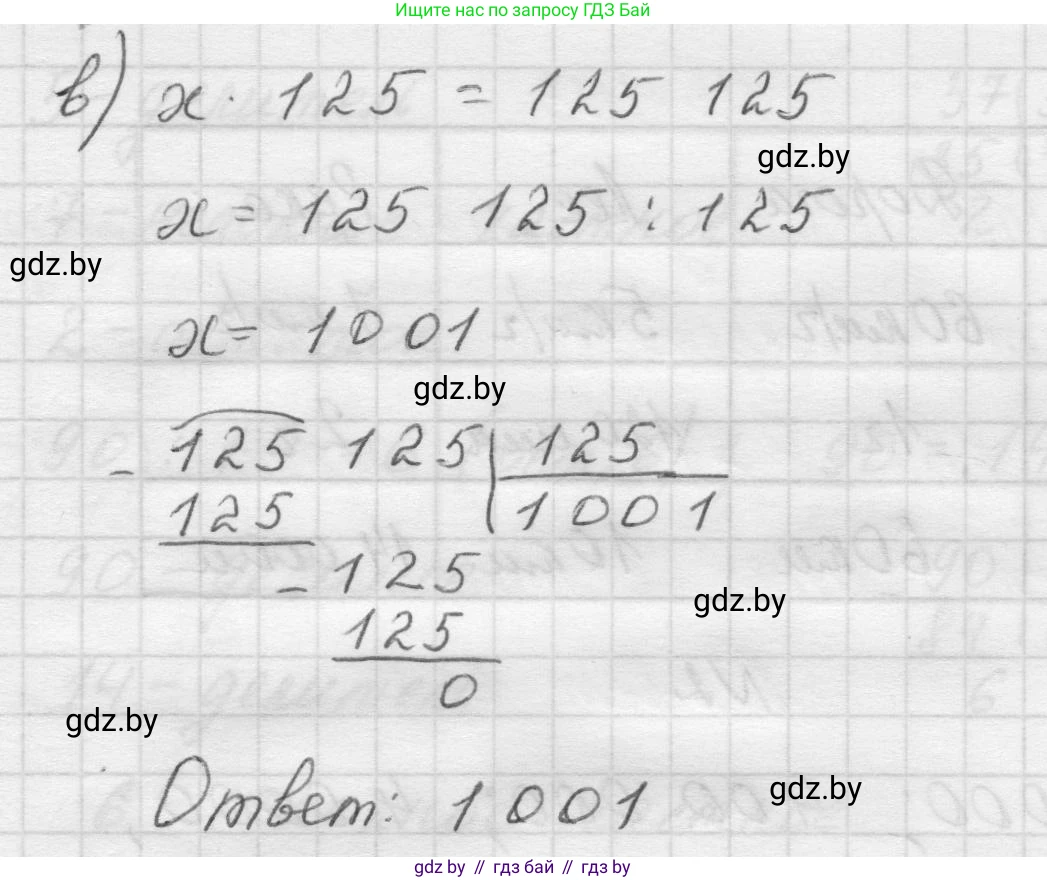 Ищите нас по запросу ГДЗ Бай
в) x · 125 = 125 125
gdz.by
x = 125 125 : 125
gdz.by
x = 1001
gdz.by
- 125 125 | 125
125 1001
- 125
gdz.by
125
0
gdz.by
Ответ: 1001
gdz.by
gdz.by // гдз бай // гдз by